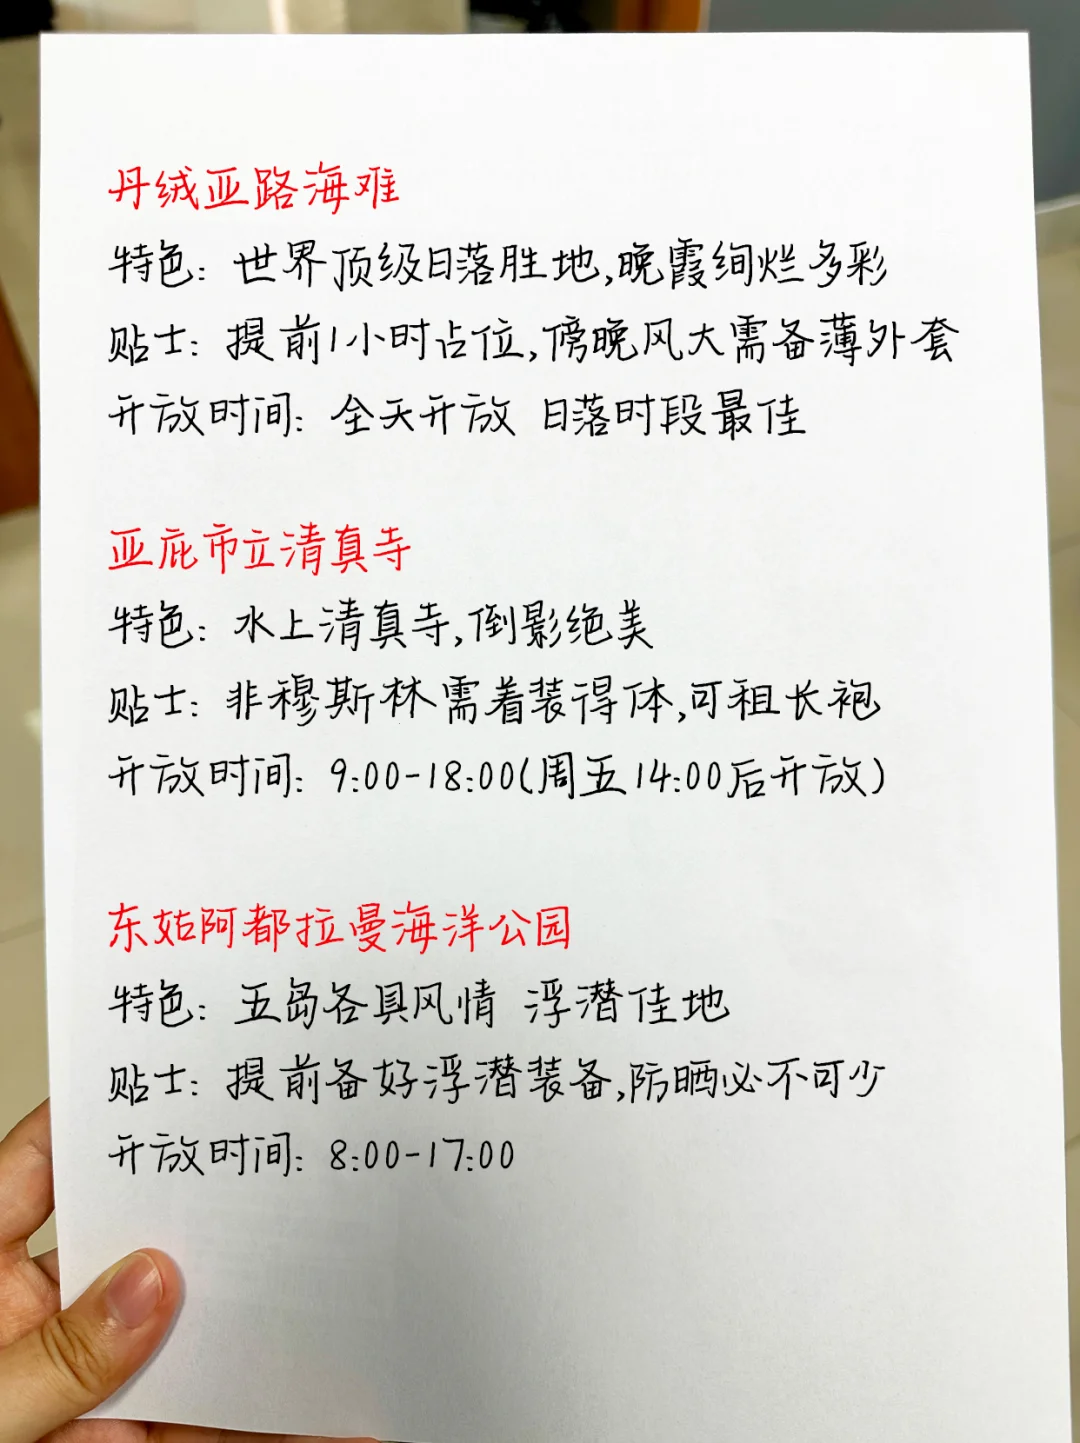 丹绒亚路海难
特色：世界顶级日落胜地,晚霞绚烂多彩
贴士：提前1小时占位,傍晚风大需备薄外套
开放时间：全天开放 日落时段最佳
亚庇市立清真寺
特色：水上清真寺,倒影绝美
贴士：非穆斯林需着装得体,可租长袍
开放时间：9:00-18:00(周五14:00后开放)
东姑阿都拉曼海洋公园
特色：五岛各具风情 浮潜佳地
贴士：提前备好浮潜装备,防晒必不可少
开放时间：8:00-17:00